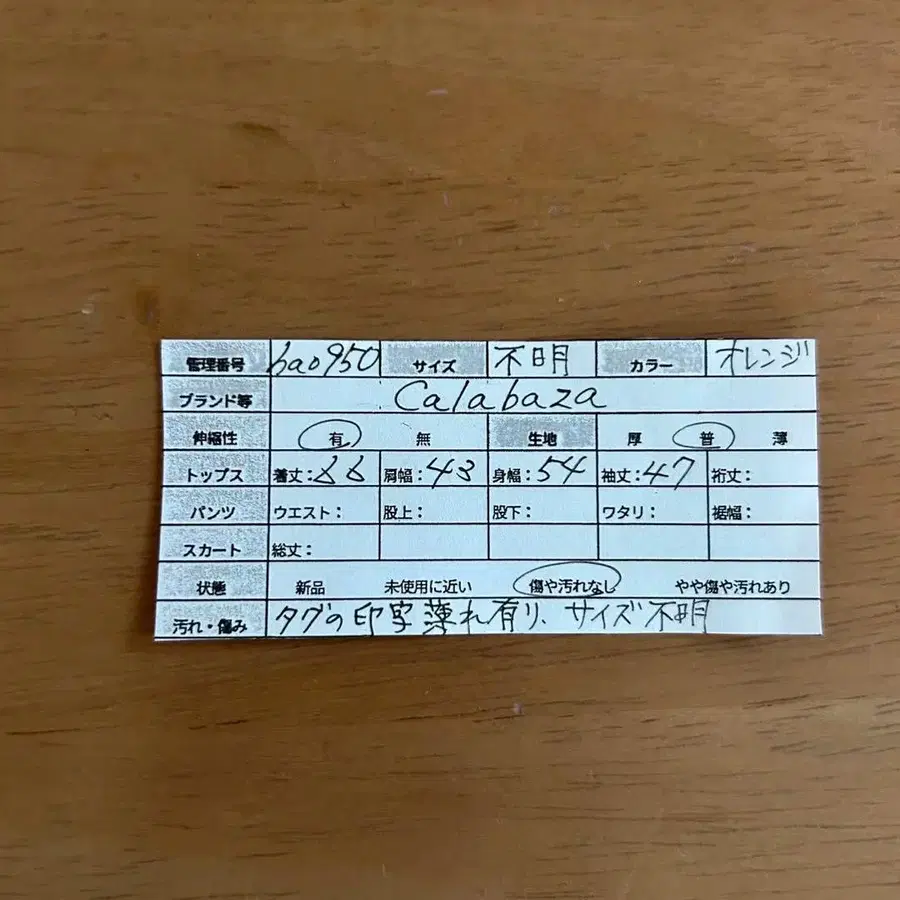 管理番号 bao950 サイズ 不明 カラー オレンジ
ブランド等 Calabaza
伸縮性 有 無 生地 厚 普 薄
トップス 着丈:66 肩幅:43 身幅:54 袖丈:47 裄丈:
パンツ ウエスト: 股上: 股下: ワタリ: 裾幅:
スカート 総丈:
状態 新品 未使用に近い 傷や汚れなし やや傷や汚れあり
汚れ・傷み タグの印字薄れ有り、サイズ不明